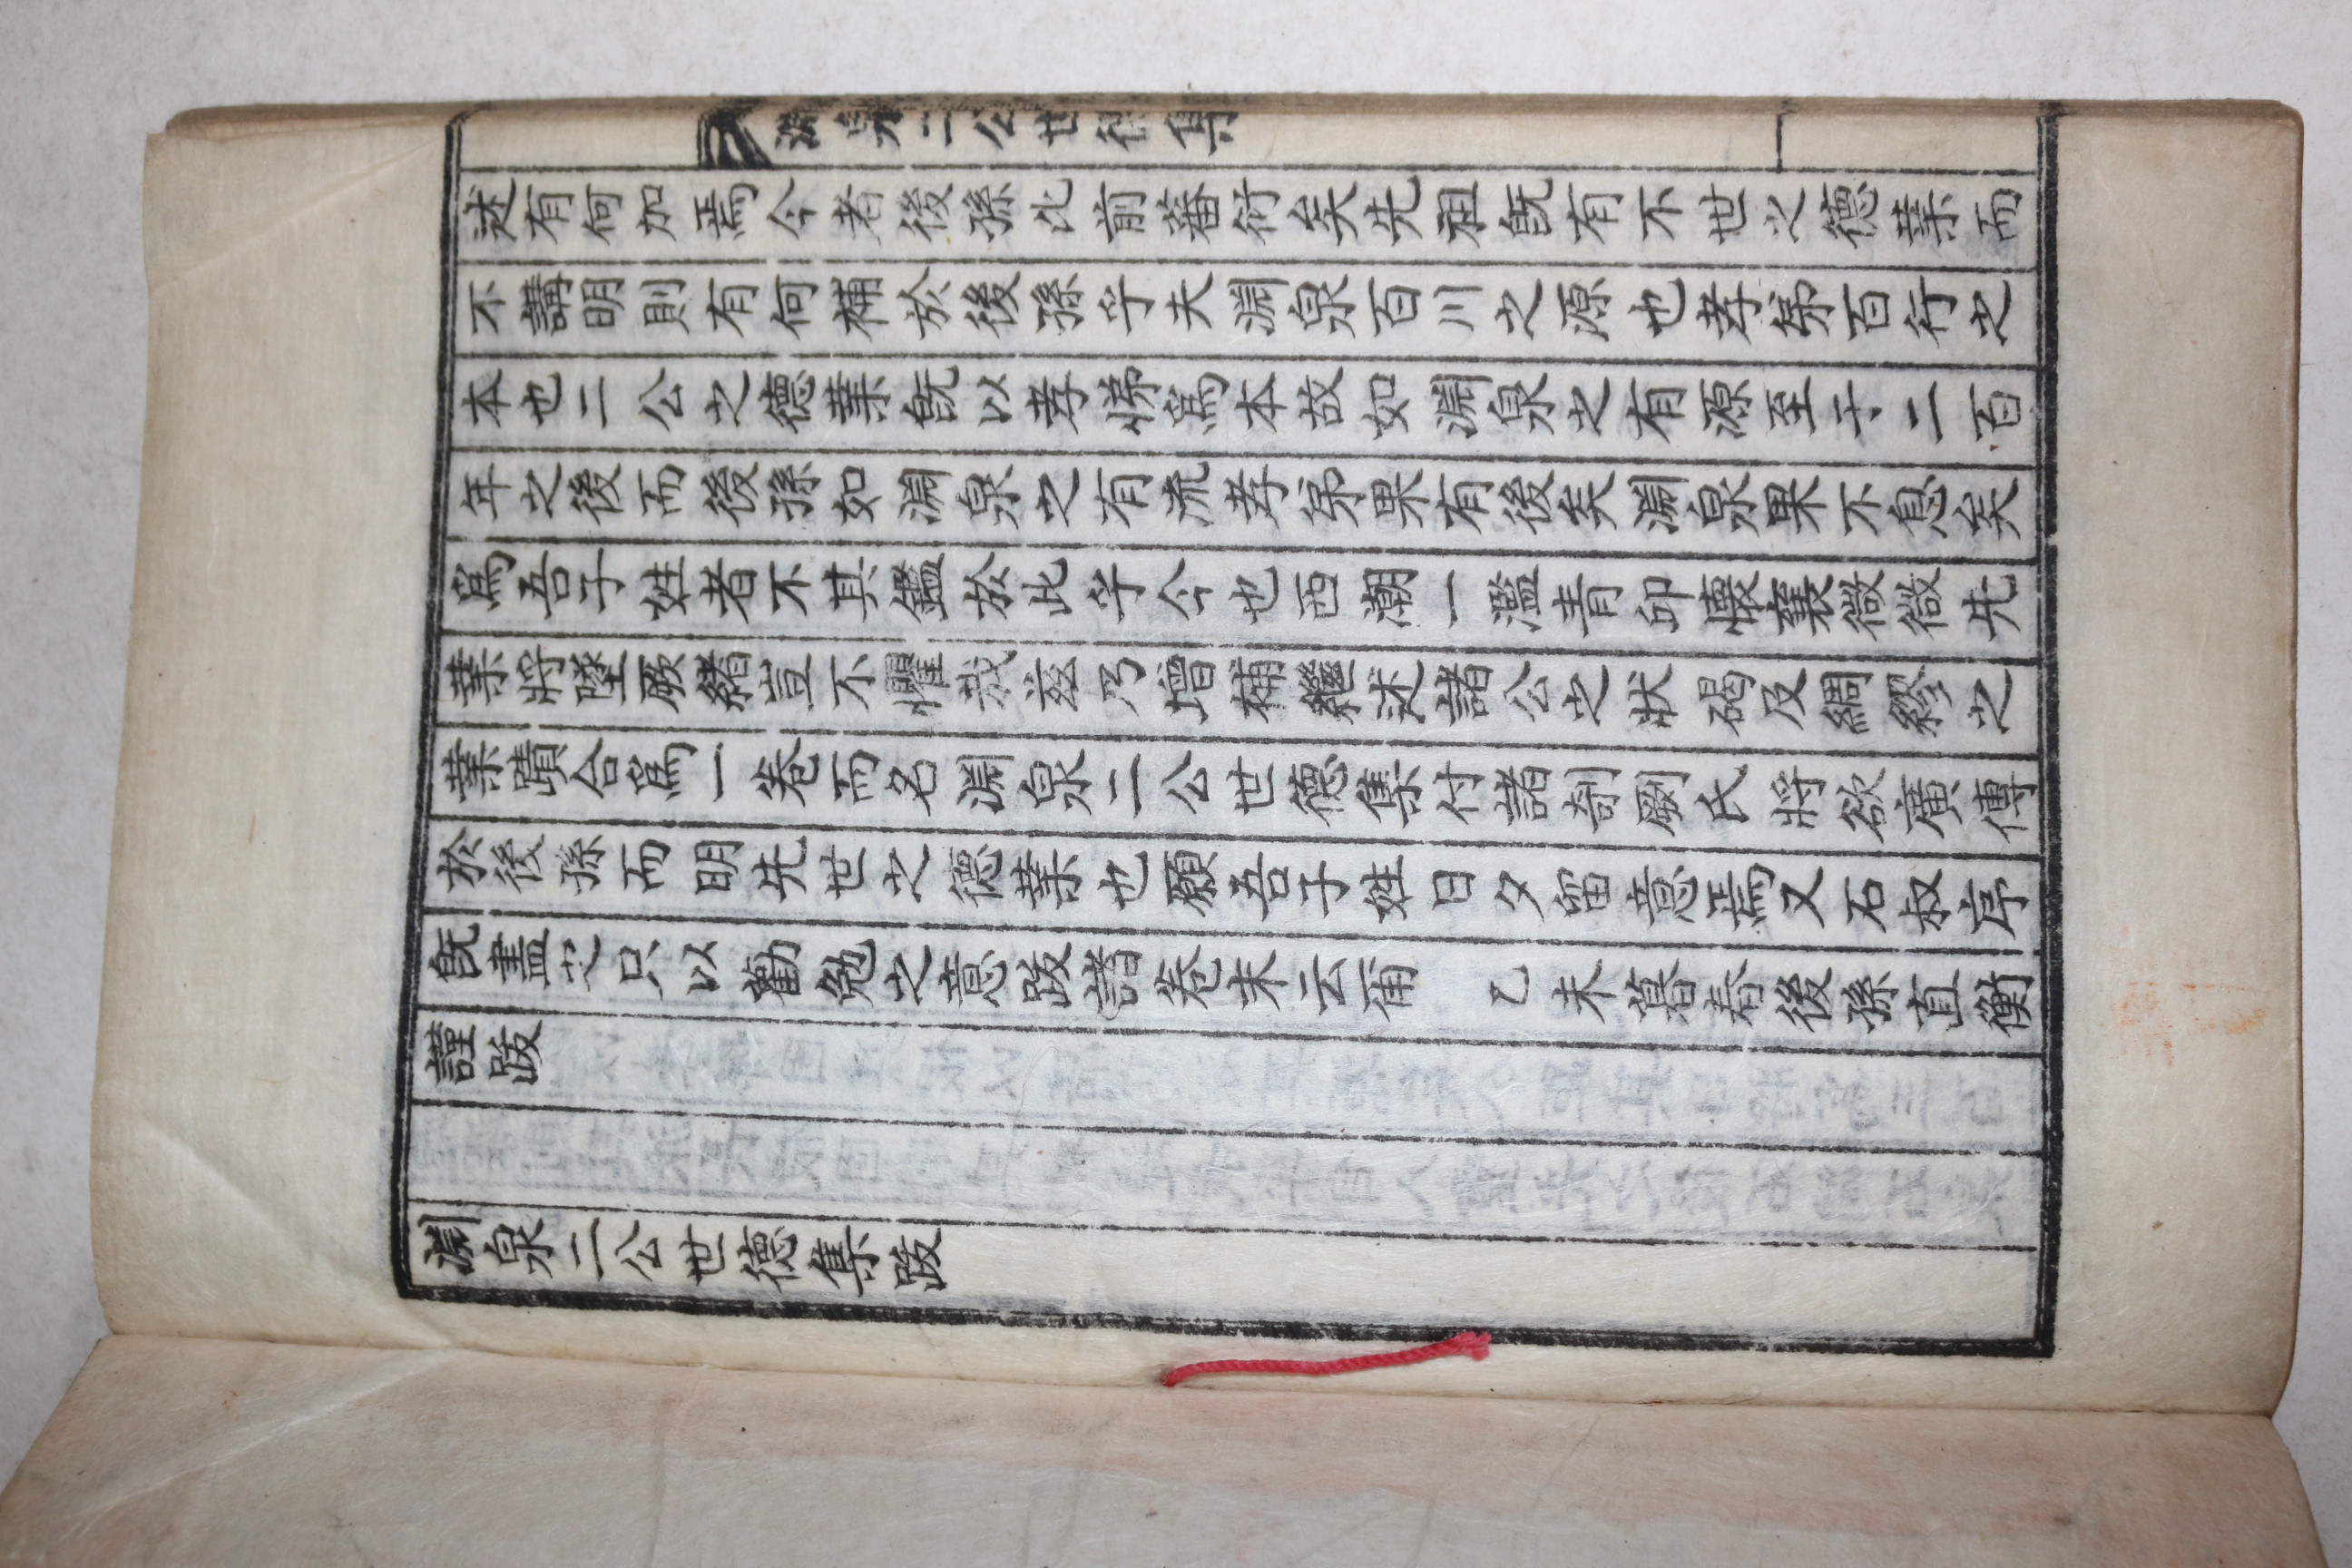 淵泉二公世德集
述有何加焉今者後孫比前蕃衍矣先祖旣有不世之德業而
不講明則有何補於後孫乎夫淵泉百川之源也孝弟百行之
本也二公之德業旣以孝悌爲本故如淵泉之有源至于二百
年之後而後孫如淵泉之有流孝弟果有後矣淵泉果不息矣
爲吾子姓者不其鑑於此乎今也西潮一濫靑邱懷襄微微先
業將墜厥緖豈不懼哉玆乃增補繼述諸公之狀碣及綢繆之
業蹟合爲一卷而名淵泉二公世德集付諸剞劂氏將欲廣傳
於後孫而明先世之德業也願吾子姓日夕留意焉又石叔序
旣盡之只以勸勉之意跋諸卷末云甭 乙未暮春後孫直衡
謹跋
淵泉二公世德集跋